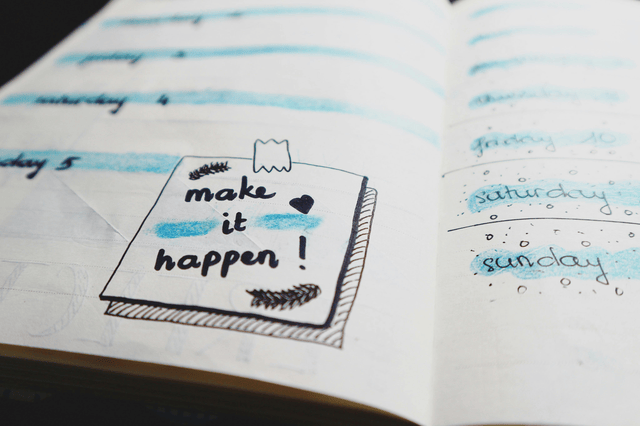 friday 3
saturday 4
day 5
make
it
happen!
friday 10
saturday
sunday